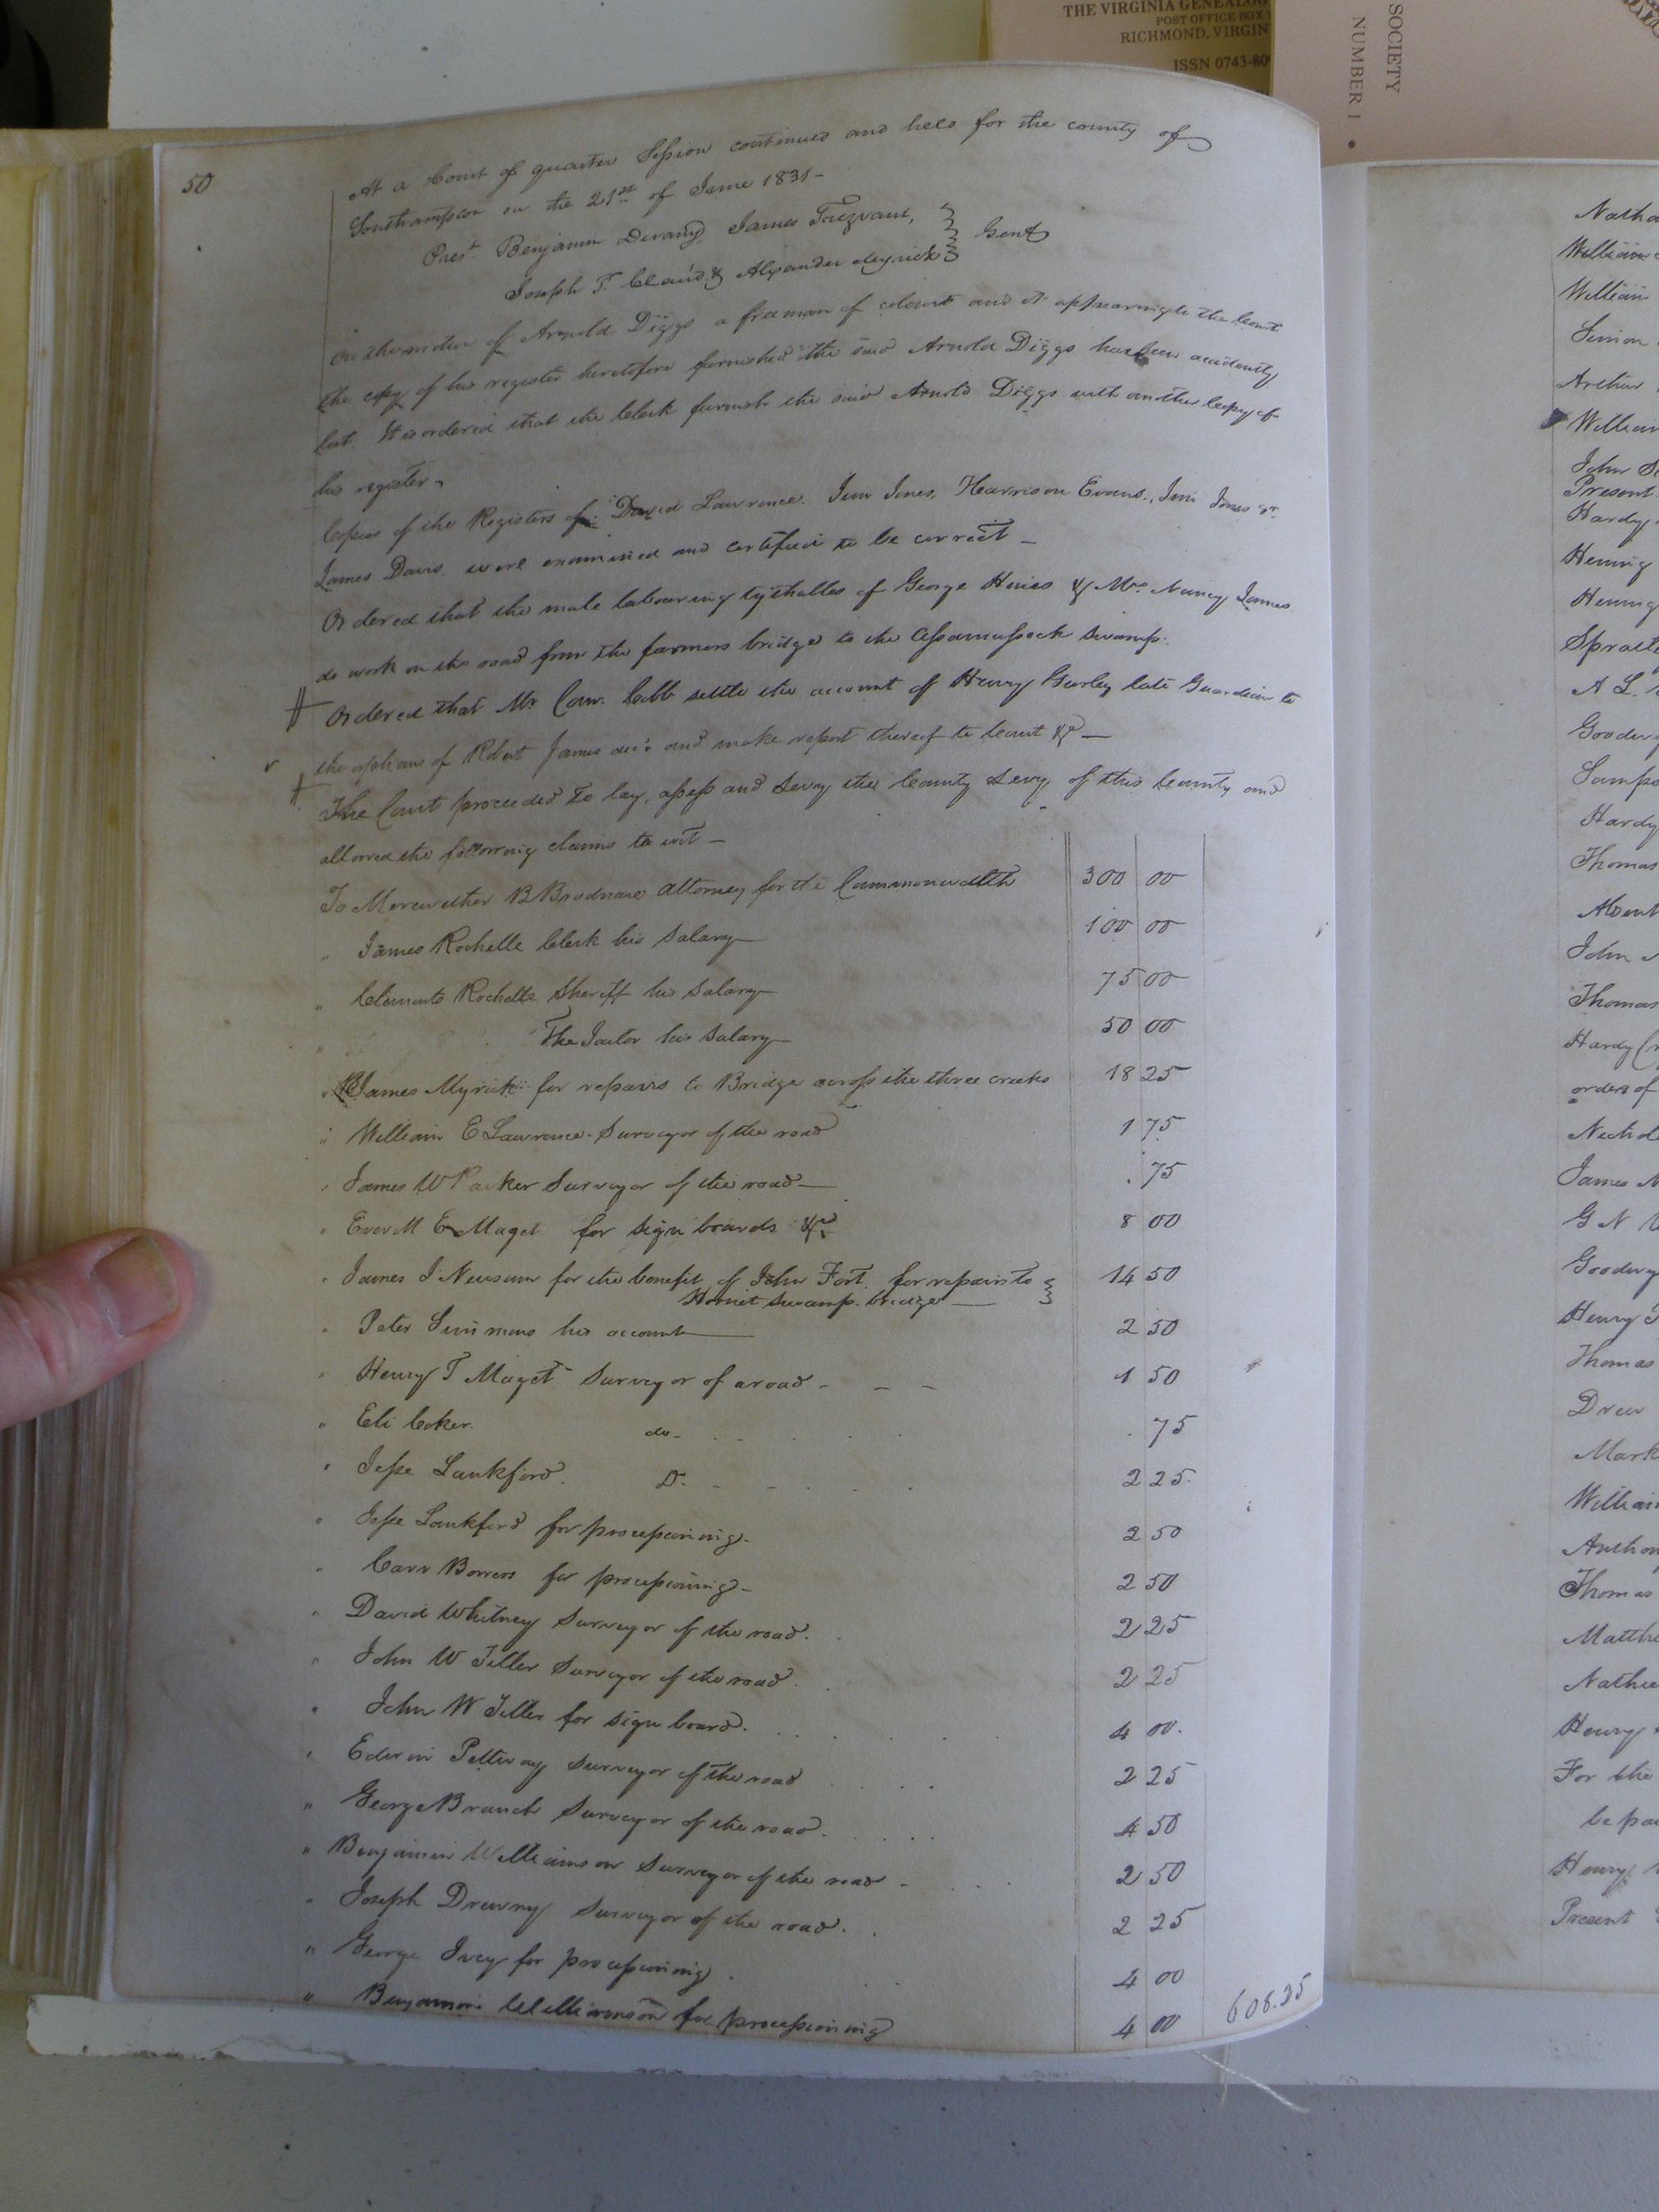 THE VIRGINIA GENEALOG
POST OFFICE BOX
RICHMOND, VIRGIN
ISSN 0743-80
SOCIETY
NUMBER 1 •
50
At a Court of quarter Session continued and held for the county of
Southampton on the 21st of June 1831-
Prest. Benjamin Devany, James Trezvant,
Joseph T. Claud, & Alexander Myrick } Gent
On the motion of Arnold Diggs a free man of colour and it appearing to the Court
the copy of his register heretofore furnished the said Arnold Diggs has been accidently
lost. It is ordered that the Clerk furnish the said Arnold Diggs with another Copy of
his register.
Copies of the Registers of David Lawrence. Jim Jones, Harrison Evans., Jim Jones Sr.
James Davis were examined and certified to be correct -
Ordered that the male labouring tythables of George Hines & Mrs. Nancy James
do work on the road from the farmers bridge to the Assamussock Swamp.
Ordered that Mr. Carr. Cobb settle the account of Henry Gurley late Guardian to
the orphans of Robert James decd and make report thereof to Court &c -
The Court proceeded to lay, assess and Levy the County Levy of this County and
allowed the following claims to wit -
To Merewether B Brodnax Attorney for the Commonwealth 300 00
" James Rochelle Clerk his Salary 100 00
" Clements Rochelle Sheriff his Salary 75 00
" The Jailor his Salary 50 00
" James Myrick for repairs to Bridge across the three creeks 18 25
" William E Lawrence. Surveyor of the road 1 75
" James W Parker Surveyor of the road . 75
" Everett E Maget for Sign boards &c. 8 00
" James J Newsum for the benefit of John Fort for repairs to 14 50
Hornet Swamp. bridge
" Peter Simmons his account 2 50
" Henry T Maget Surveyor of a road - - - 1 50
" Eli Coker. do - . 75
" Jesse Lankford. Do. - 2 25.
" Jesse Lankford for processioning - 2 50
" Carr Bowers for processioning - 2 50
" David Whitney Surveyor of the road. 2 25
" John W Tiller Surveyor of the road. 2 25
" John W Tiller for Sign board. 4 00.
" Edwin Pettway Surveyor of the road 2 25
" George Branch Surveyor of the road. 4 50
" Benjamin Williamson Surveyor of the road - 2 50
" Joseph Drewry Surveyor of the road. 2 25
" George Ivey for processioning 4 00
" Benjamin Williamson for processioning 4 00
608.25
Natha
William
William
Simon
Arthur
William
John
Present
Hardy
Henning
Henning
Spratle
A L.
Goodwy
Samps
Hardy
Thomas
Absent
John
Thomas
Hardy
orders of
James
G N
Goodwy
Henry
Thomas
Drew
Mark
William
Anthon
Thomas
Matthe
Henry
For the
be pai
Henry
Present